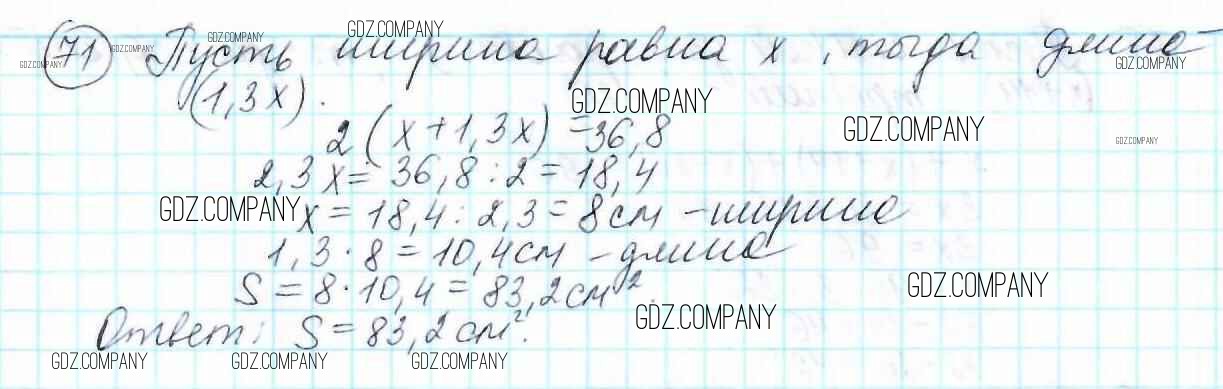 GDZ.COMPANY
GDZ.COMPANY
71 GDZ.COMPANY Пусть ширина равна x, тогда длина
GDZ.COMPANY
GDZ.COMPANY
(1,3x).
GDZ.COMPANY
2(x+1,3x)=36,8
GDZ.COMPANY
GDZ.COMPANY
2,3x=36,8:2=18,4
GDZ.COMPANY x=18,4:2,3=8см - ширина
1,3·8=10,4см - длина
S=8·10,4=83,2см².
GDZ.COMPANY
GDZ.COMPANY
Ответ: S=83,2см².
GDZ.COMPANY GDZ.COMPANY GDZ.COMPANY